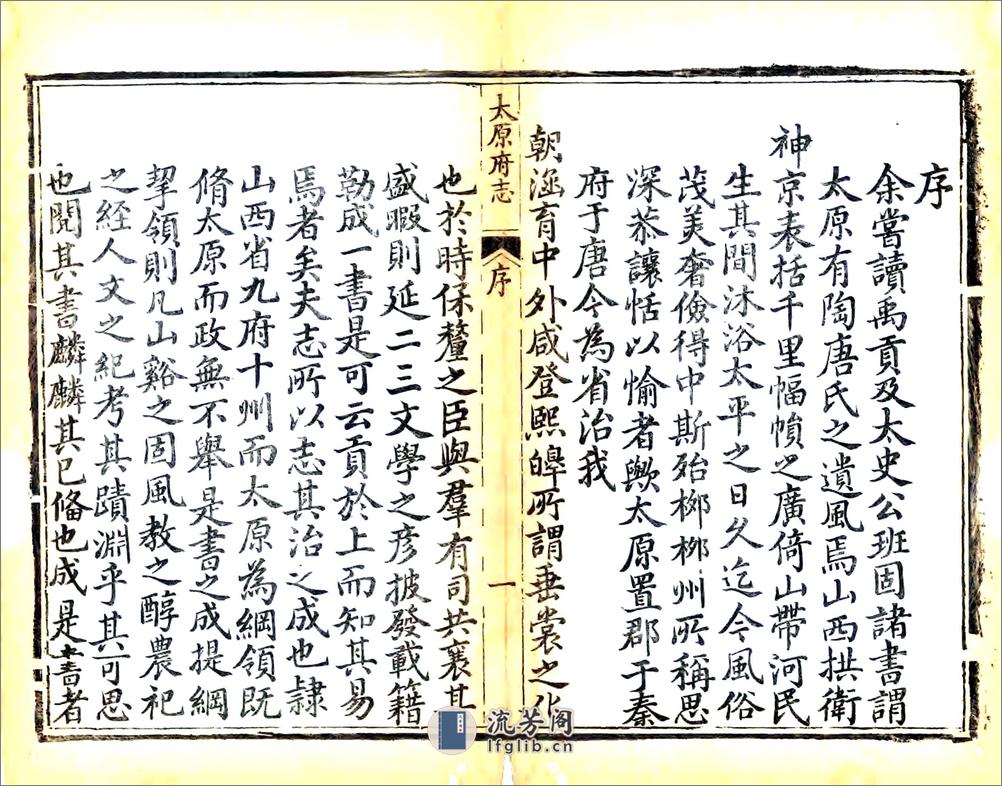 序
余嘗讀禹貢及太史公班固諸書謂
太原有陶唐氏之遺風焉山西拱衛
神京表括千里幅幀之廣倚山帶河民
生其間沐浴太平之日久迄今風俗
茂美奢儉得中斯殆栁栁州所稱思
深㳟讓恬以愉者歟太原置郡于秦
府于唐今為省治我
朝涵育中外咸登熙皡所謂垂裳之化
太原府志
序
一
也於時保釐之臣與羣有司共襄其
盛暇則延二三文學之彦披發載籍
勒成一書是可云貢於上而知其易
焉者矣夫志所以志其治之成也隷
山西省九府十州而太原為綱領既
脩太原而政無不舉是書之成提綱
挈領則凡山谿之固風教之醇農祀
之經人文之紀考其蹟淵乎其可思
也閱其書麟麟其已俻也成是書者
流芳阁
lfglib.cn